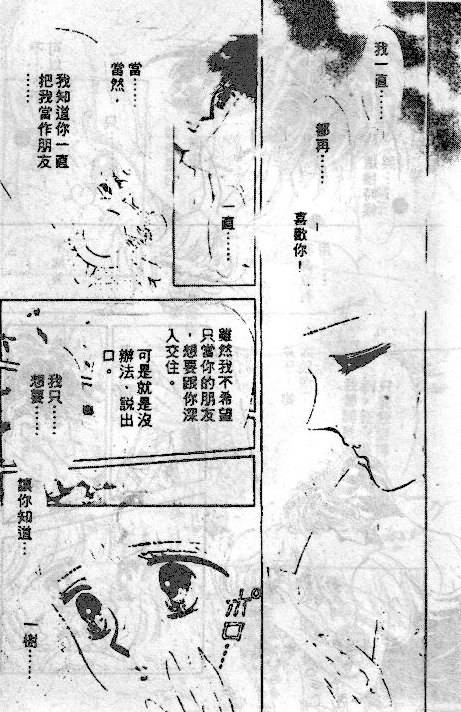 我一直……
鄒再……
喜歡你！
一直……
當……
當然，
我知道你一直
把我當作朋友
……
雖然我不希望
只當你的朋友
，想要跟你深
入交往。
可是就是沒
辦法，説出
口。
我只……
想要……
讓你知道…
一樹……
ポロ……